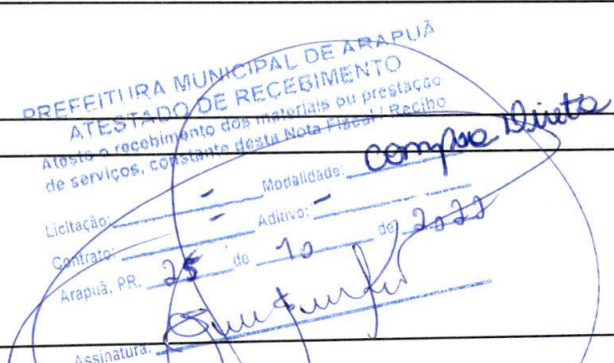 PREFEITURA MUNICIPAL DE ARAPUÃ
ATESTADO DE RECEBIMENTO
Atesto o recebimento dos materiais ou prestação
de serviços, constante desta Nota Fiscal / Recibo
Licitação: - Modalidade: compra Direta
Contrato: - Aditivo: -
Arapuã, PR. 25 de 10 de 2022
Assinatura: